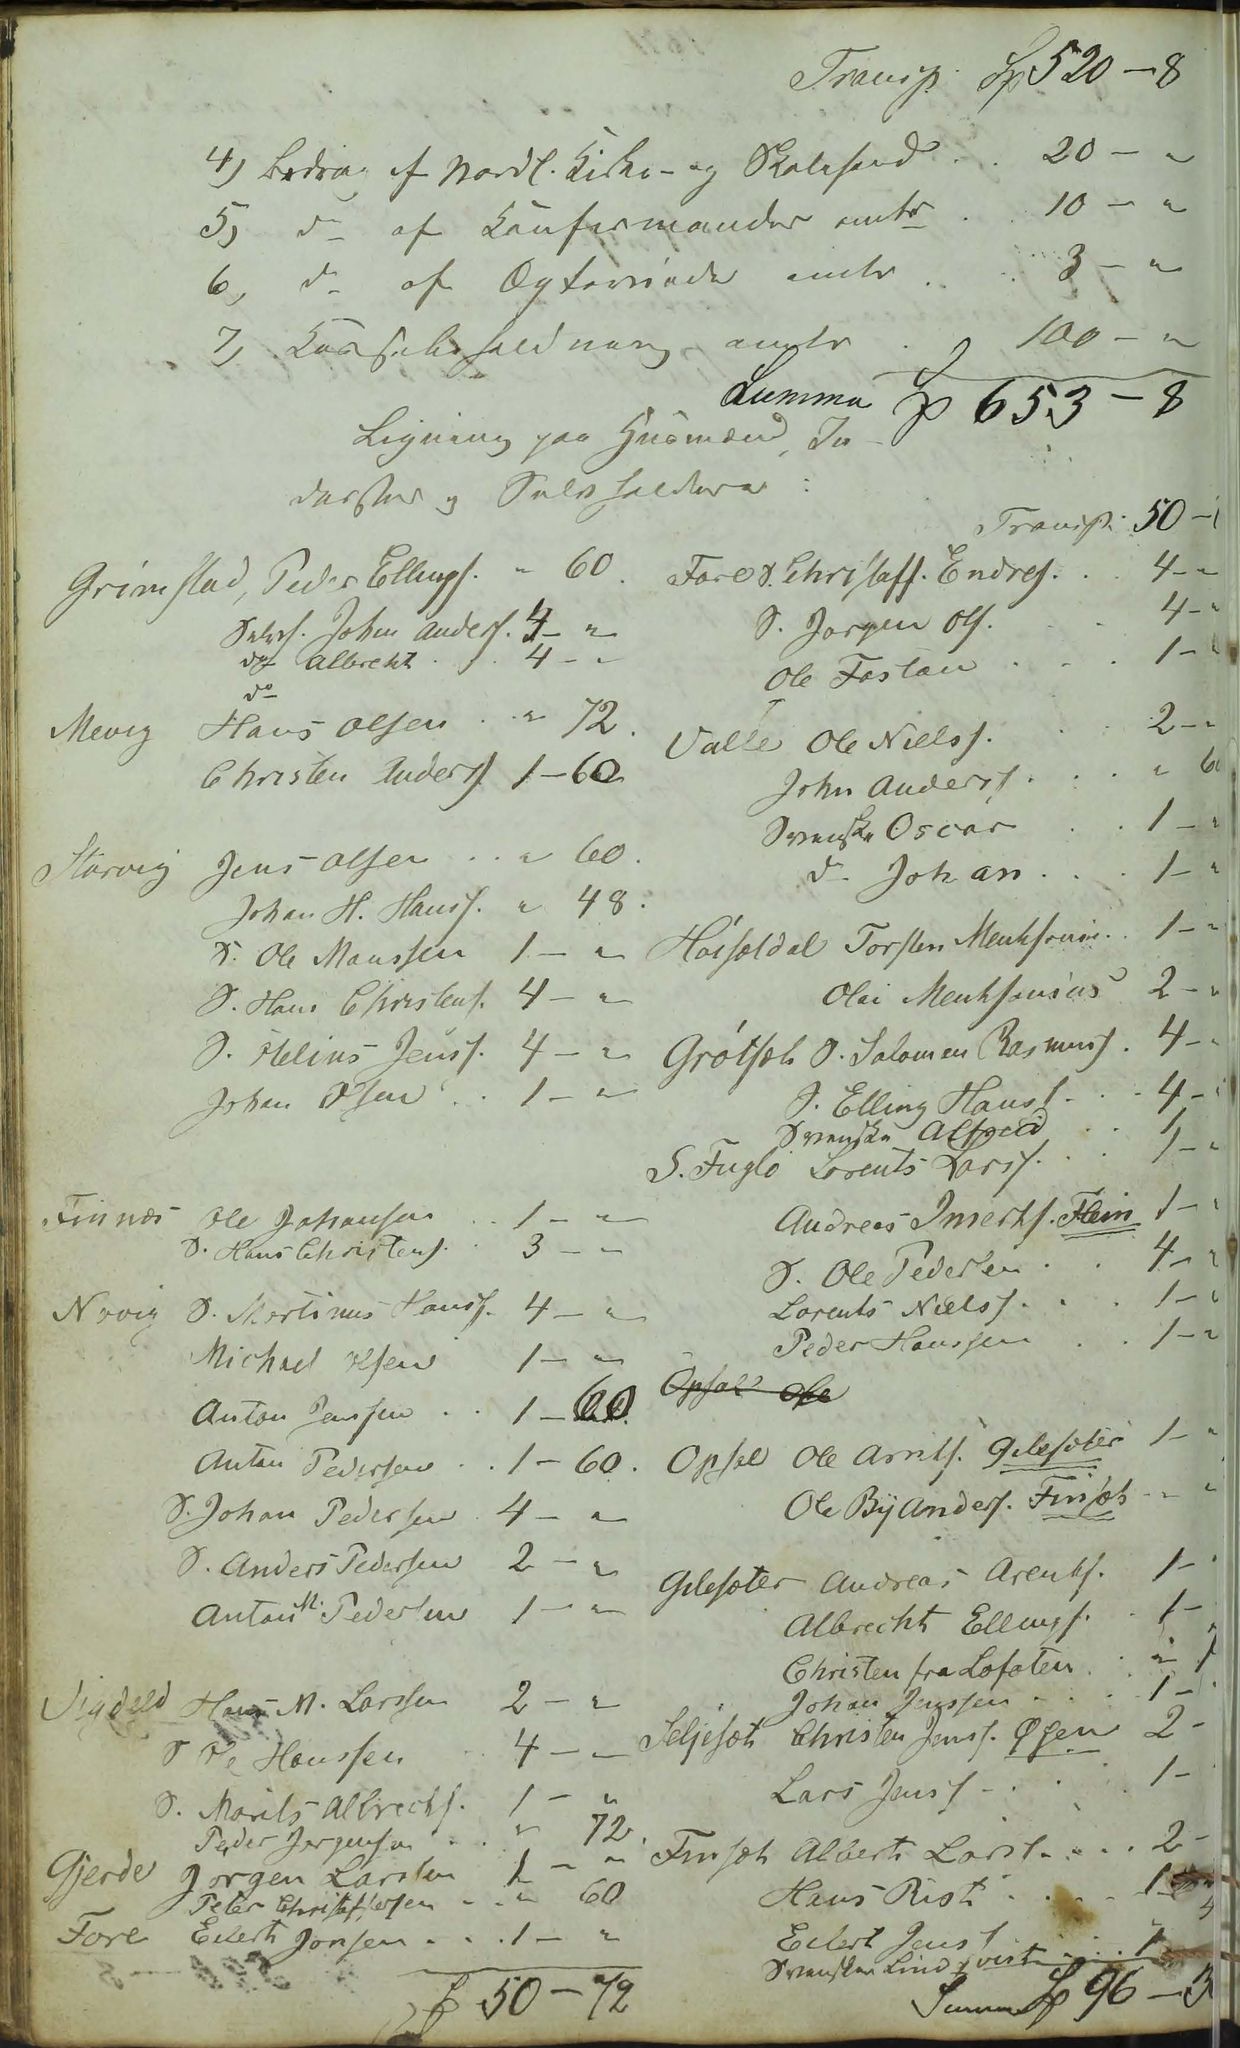 Transp. Sp 520 - 8
4) Bidrag af Nordl. Kirke- og Skolefond . . 20 - "
5) do af Konfirmander antr . . 10 - "
6) do af Ægteviede antr . . 3 - "
7) Kassebeholdning antr . 100 - "
Summa Sp 653 - 8
Ligning paa Husmænd, In-
derster og Selvholdere :
Grimstad, Peder Ellings. " 60.
Selvs. John Anders. 4 - "
do Albrecht . . 4 - "
do
Mevig Hans Olsen . . " 72.
Christen Anders. 1 - 60
Storvig Jens Olsen . . " 60.
Johan H. Hanss. " 48.
S. Ole Monssen 1 - "
S. Hans Christens. 4 - "
S. Helius Jenss. 4 - "
Johan Olsen . . 1 - "
Finnes Ole Johansen . . 1 - "
S. Hans Christens. . 3 - "
Novig S. Martinus Hanss. 4 - "
Michael Olsen 1 - "
Anton Jenssen . . 1 - 60.
Anton Pedersen . . 1 - 60.
S. Johan Pedersen . 4 - "
S. Anders Pedersen 2 - "
Anton M. Pedersen 1 - "
Vigdeld Hans M. Larssen 2 - "
S Ole Hanssen 4 - "
S. Morits Albrechts. 1 - "
Peder Jørgensen . . " 72.
Gjerde Jørgen Larssen 1 - "
Peter Christoffersen . . " 60
Fore Edert Jonsen . . . . 1 - "
Sp 50 - 72
Transp. 50 -
Fore S. Christoff. Endres. . . 4 - "
S. Jørgen Ols. . . 4 - "
Ole Fastan . . . 1 - "
Valle Ole Niels. . 2 - "
John Anders. . . . " 60
Svenske Oscar . . 1 - "
do Johan . . . 1 - "
Høiseldal Torsten . . 1 - "
Olai 2 - "
Grøtsæt S. Salomon Rasmuss. . 4 - "
S. Elling Hanss. . . 4 -
Svenske Alfred . . 1
S. Fuglø Lorents Larss. . . 1 - "
Andreas Insertss. Flein 1 - "
S. Ole Pedersen . . 4 - "
Lorents Nielss. . . 1 - "
Peder Hanssen . . 1 - "
Opsal Ole
Opsal Ole Arntss. Gilesæter 1 - "
Ole By Anders. Finsæt - "
Gilesæter Andreas Arentss. 1 -
Albrecht Ellings. . 1 -
Christen fra Lofoten . . "
Johan Jenssen . . . 1 -
Seljesæt Christen Jenss. Øgen 2 -
Lars Jenss . . . 1 -
Finsæt Albert Larss. . . . 2 -
Hans Rist . . . . 1
Edert Jenss . . . 1
Svensken Lindqvist
Summa Sp 96 - 3